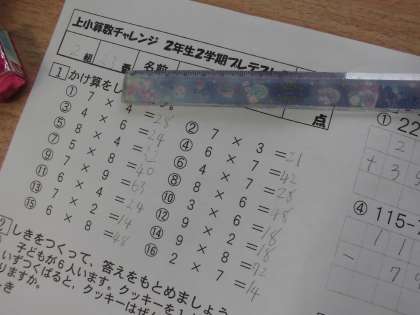 上小算数チャレンジ 2年生2学期プレテスト
2組 番 名前
点
1 かけ算をし
① 7 × 4 = 28
③ 4 × 6 = 24
⑤ 8 × 4 = 32
⑦ 5 × 8 = 40
⑨ 7 × 9 = 63
⑪ 6 × 4 = 24
⑬ 7 × 2 = 14
⑮ 6 × 8 = 48
② 7 × 3 = 21
④ 6 × 7 = 42
⑥ 7 × 4 = 28
⑧ 8 × 6 = 48
⑩ 3 × 6 = 18
⑫ 9 × 2 = 18
⑭ 9 × 8 = 72
⑯ 2 × 7 = 14
2 しきをつくって、答えをもとめましょう
子どもが6人います。クッキーを
いずつくばると、クッキーはぜん
りますか。
① 22
2
+ 3
④ 115-7
1 1
- 7